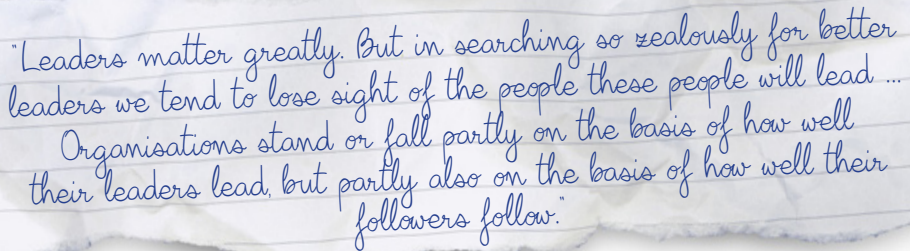 "Leaders matter greatly. But in searching so zealously for better
leaders we tend to lose sight of the people these people will lead ...
Organisations stand or fall partly on the basis of how well
their leaders lead, but partly also on the basis of how well their
followers follow."